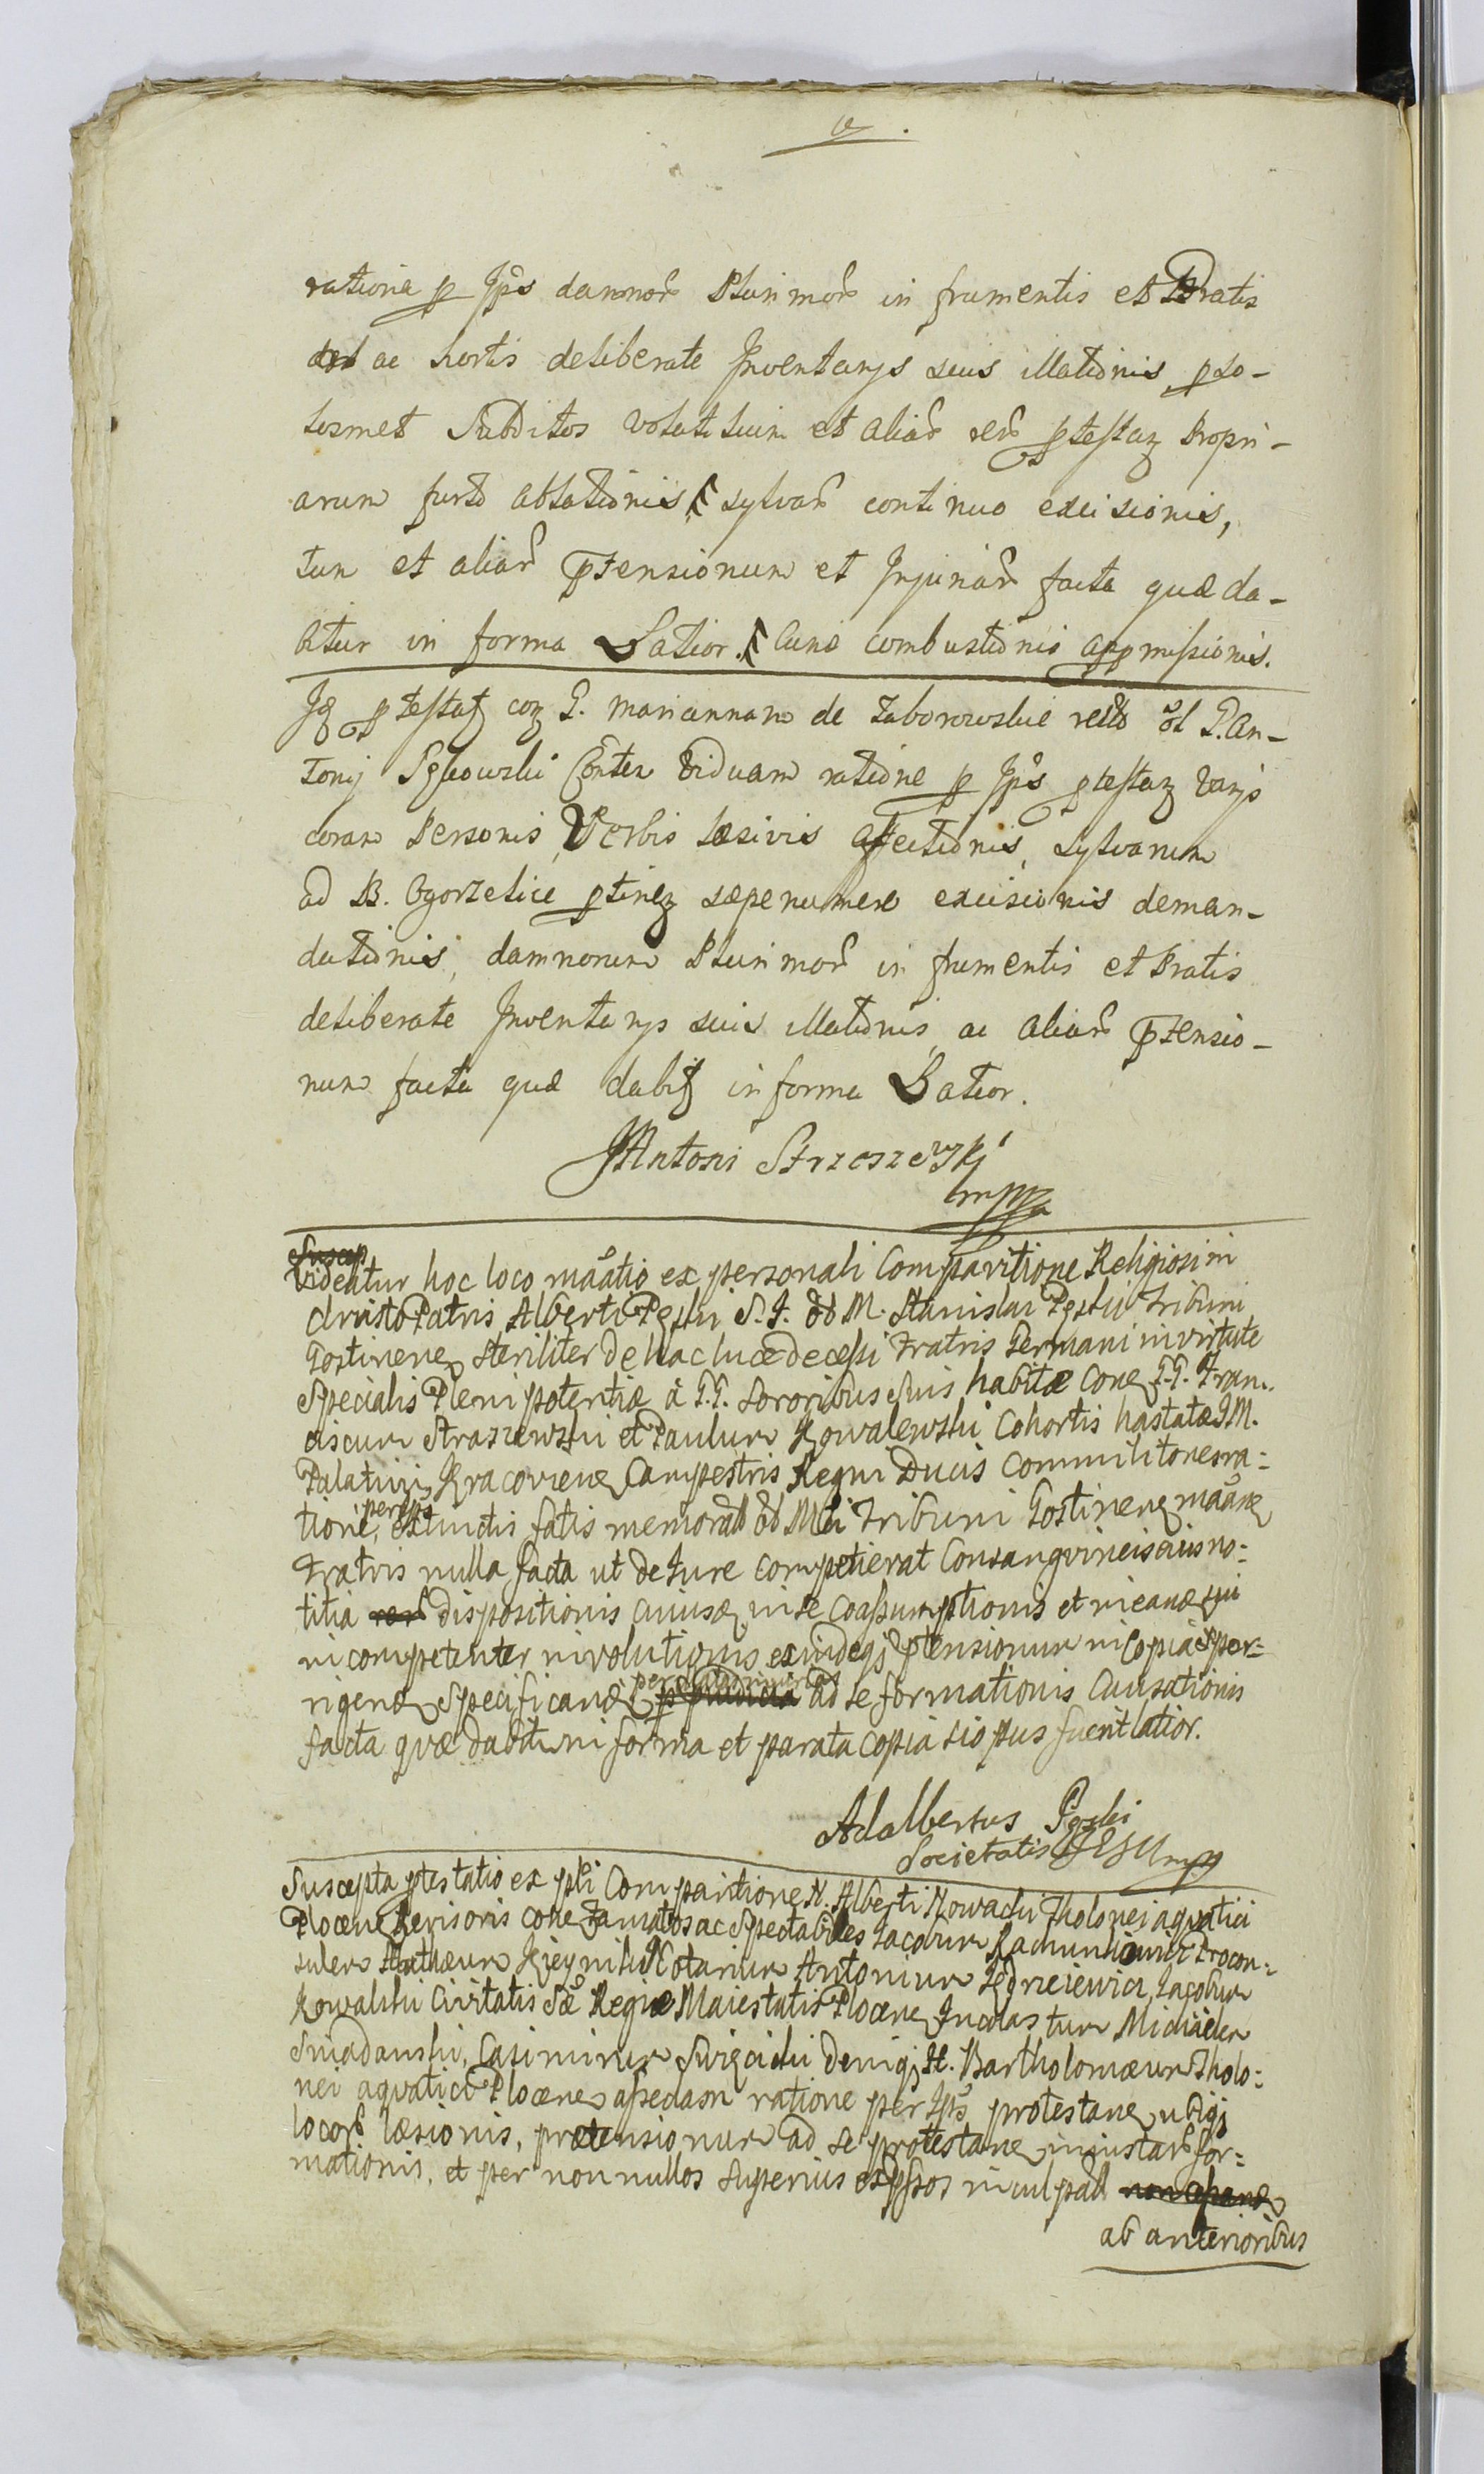 ratione p Jps damnor Plurimor in frumentis et Pratis
ac hortis deliberate Inventarys suis illationis, p so-
losmet Subditos volatilium et aliar rer ptestaz Propri-
arum furto ablationis, sylvar continuo excisionis,
tum et aliar ptensionum et Injuriar facta quæ da-
bitur in forma Latior. Cune combustionis appromissionis.
Jz ptestatz coz G. Mariannam de Zaborowskie relto ol G. An-
tonij Sękowski Conten Viduam ratione p Jps ptestaz Varijs
coram Personis, Verbis læsivis affectionis, sylvarum
ad B. Ogorzelice ptinez sæpenumero excisionis deman-
dationis, damnorum Plurimor in frumentis et Pratis
deliberate Inventarys suis illationis, ac aliar ptensio-
num facta quæ dabitz in forma Latior.
JAntoni Strzeszewski
mppa
Suscep
Videatur hoc loco maatio ex personali Comparitione Religiosi in
Christo Patris Alberti Pęski S. J. ol M. Stanislai Pęski Tribuni
Gostinenz steriliter de hac luce decessi Fratris Germani in virtute
Specialis Plenipotentiæ à G.G. Sororibus suis habitæ conz G.G. Fran-
ciscum Straszewski et Paulum Kowalewski Cohortis hastatæ J.M.
Palatini Kracovienz Campestris Regni Ducis Commilitones ra=
tione, per Jps extinctis fatis memorati ol Mci Tribuni Gostinenz maanz
Fratris nulla facta ut de Jure competierat Consangvineis eius no=
titia rer dispositionis cuiusz in se Coassumptionis et in eanz sui
incompetenter involutionis exindeqz ptensionum in Copia expor=
rigenz Specificanz p prædicta ad se formationis Causationis
facta quæ dabitur in forma et parata copia si opus fuerit latior.
Adalbertus Pęski
Societatis JESU mpp
Suscepta ptestatio ex pli Comparitione N. Alberti Nowacki Tholonei aquatici
Plocenz Revisoris conz Famatos ac Spectabiles Jacobum Rachunkowicz Procon=
sulem Mathæum Krzeynski Notarium Antonium Jędrzeiewicz, Jacobum
Kowalski Civitatis Sæ Regiæ Maiestatis Plocenz Incolas tum Michaelem
Sniadanski, Casimirum Swięcicki deniqz N. Bartholomæum Tholo=
nei aquatici Plocenz assedam ratione per Jps protestanz ubiqz
locor læsionis, prætensionum ad se protestanz iniustar for=
mationis, et per nonnullos superius expssos inculpati non assenz
ab anterioribus